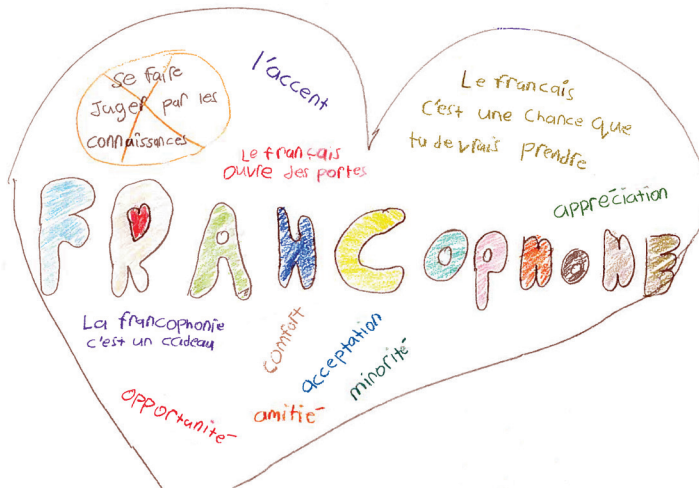 se faire
Juger par les
connaissances
l'accent
Le francais
c'est une chance que
tu devrais prendre
Le français
ouvre des portes
appréciation
FRANCOPHONE
La francophonie
c'est un cadeau
comfort
acceptation
minorité
opportunité
amitié